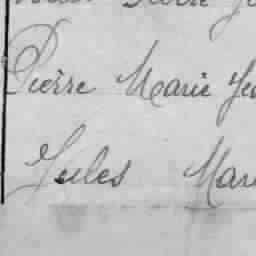 Pierre
Pierre Marie Je
Jules Mari